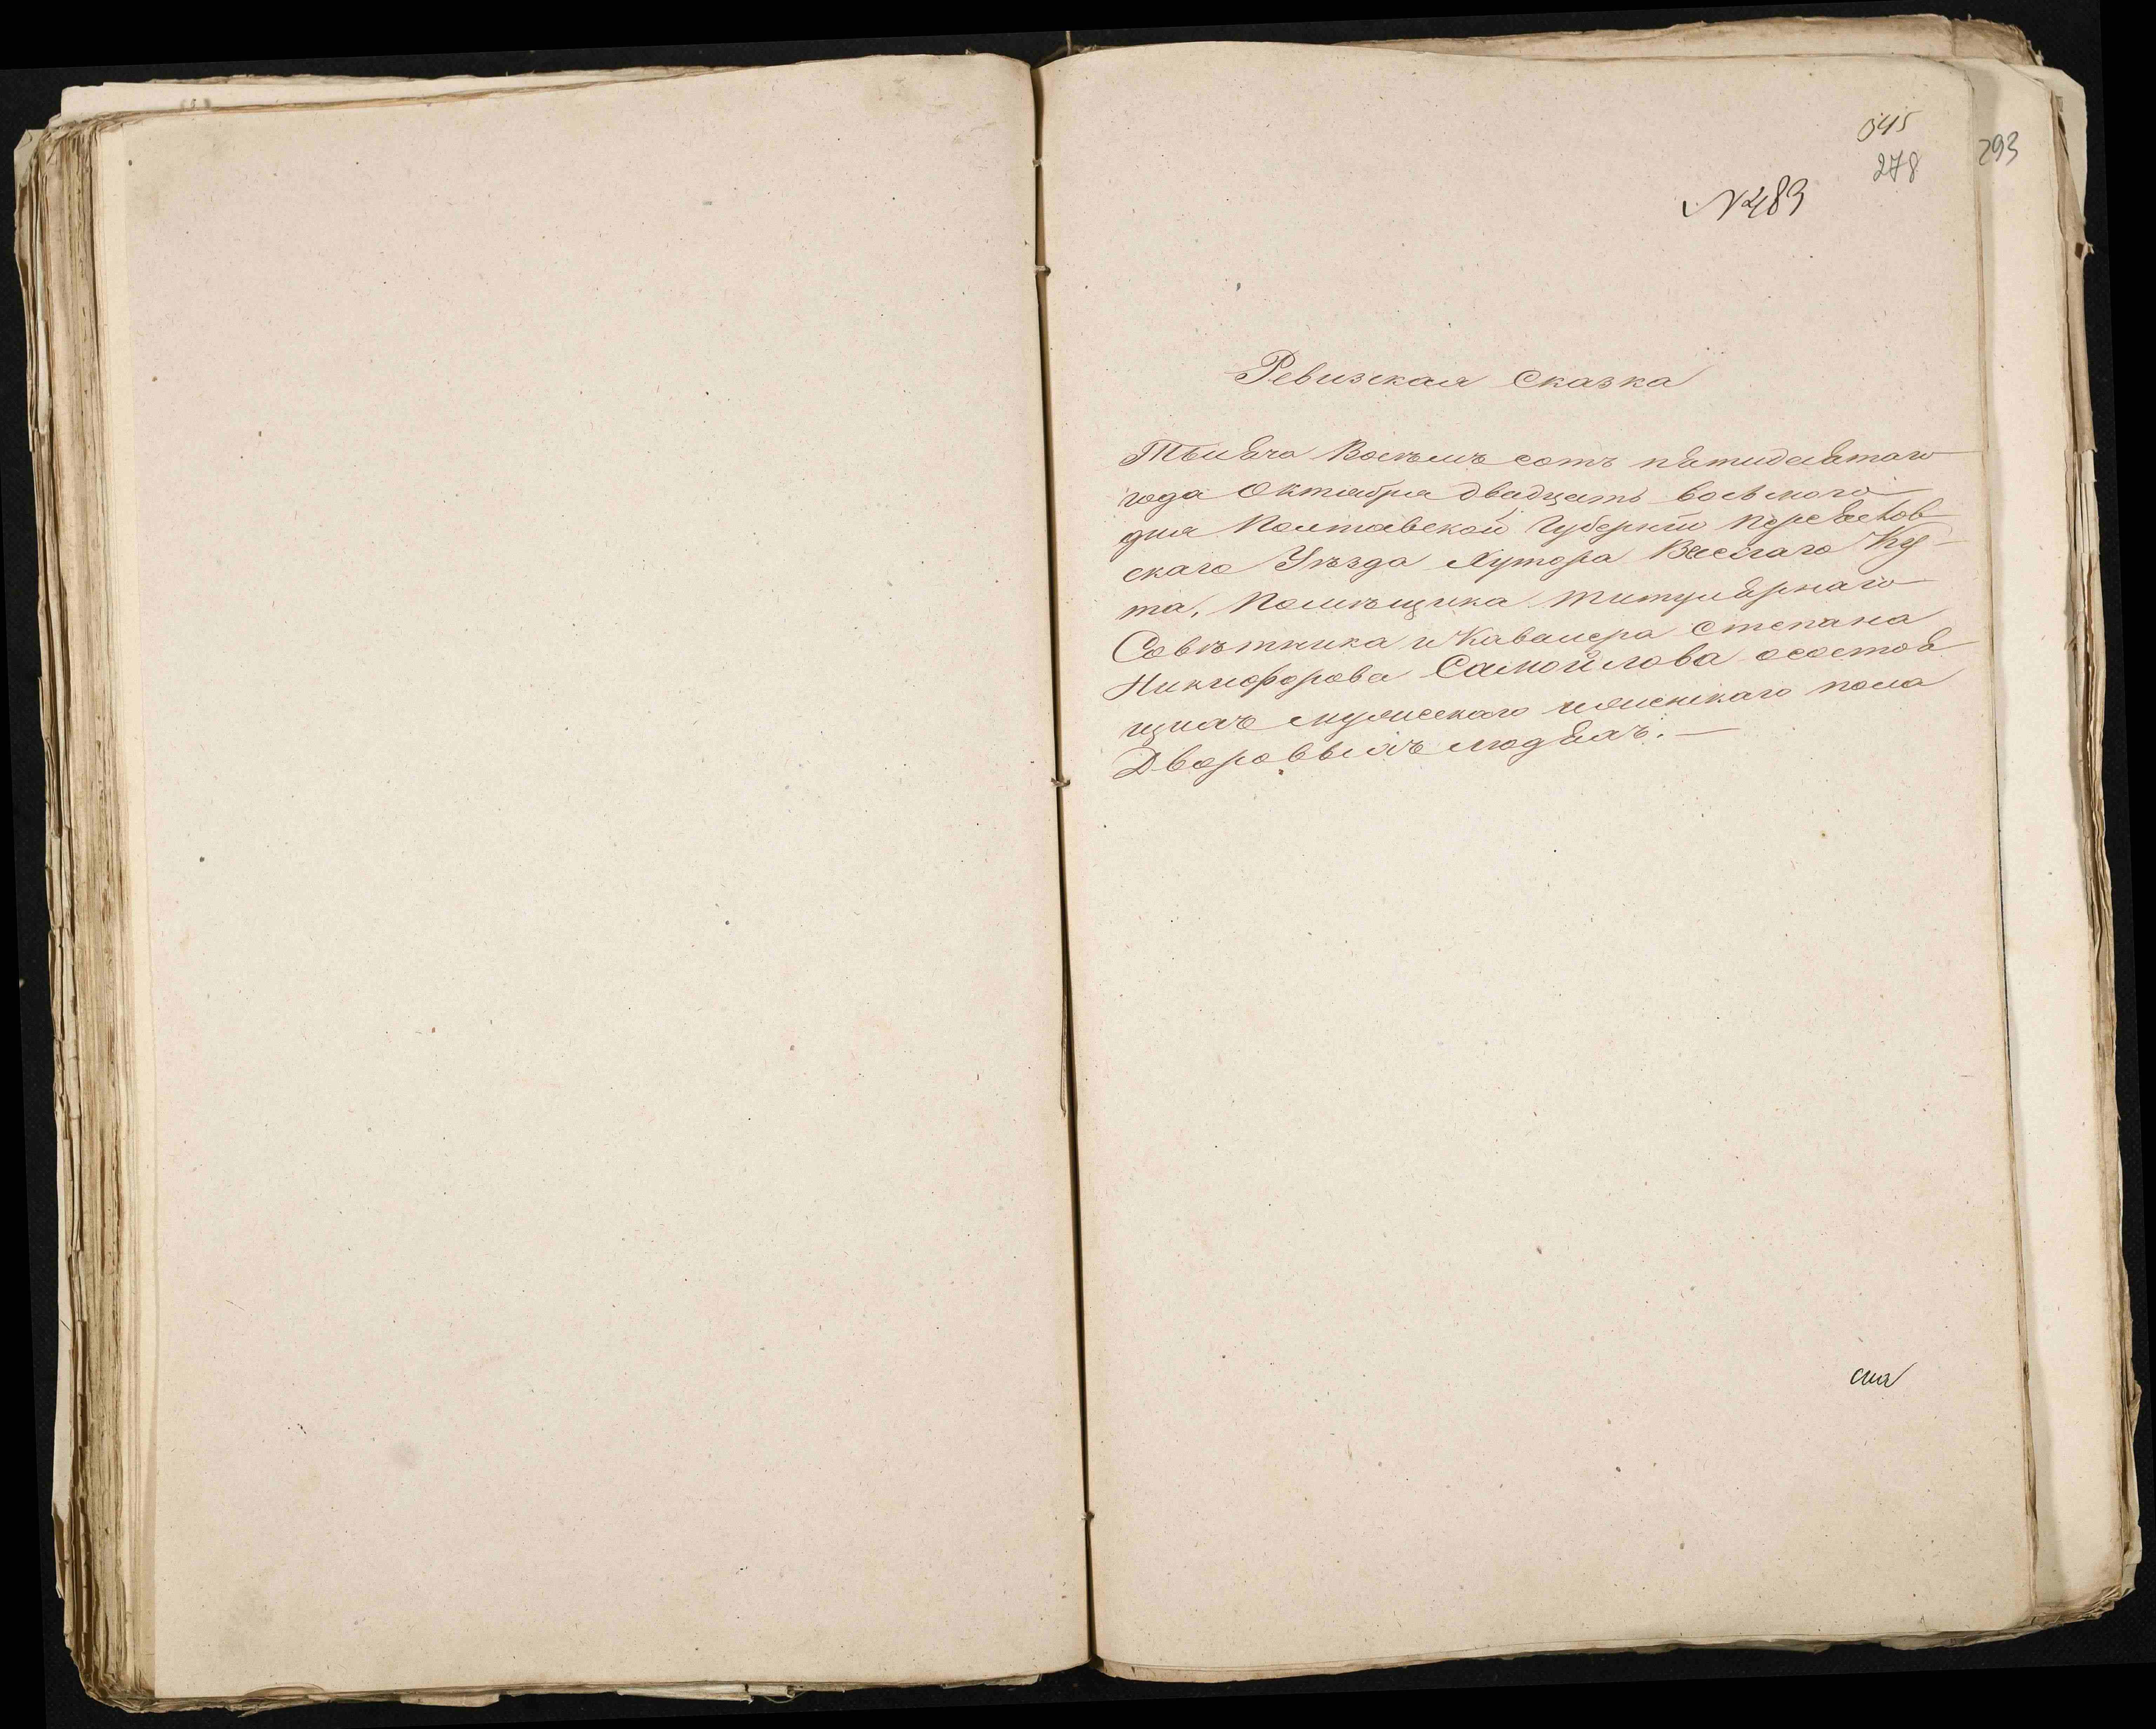 545
278
293
№ 483
Ревизская Сказка
Тысяча Восемъ сотъ пятидесятаго
года Октября двадцать восьмого
дня Полтавской Губернiи Переяслов-
скаго Уѣзда Хутора Ку-
та, Помѣщика титулярнаго
Совѣтника и Кавалера Степана
Никифорова Самойлова осостоя
щихъ мужескаго иженскаго пола
Дворовыхъ людяхъ. —